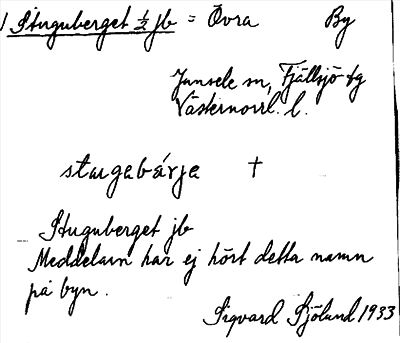 1 Stuguberget ½ jb = Övra By
Junsele sn, Fjällsjö tg
Västernorrl. l.
stugebárje †
Stuguberget jb
Meddelarn har ej hört detta namn
på byn.
Sigvard Sjölund 1933